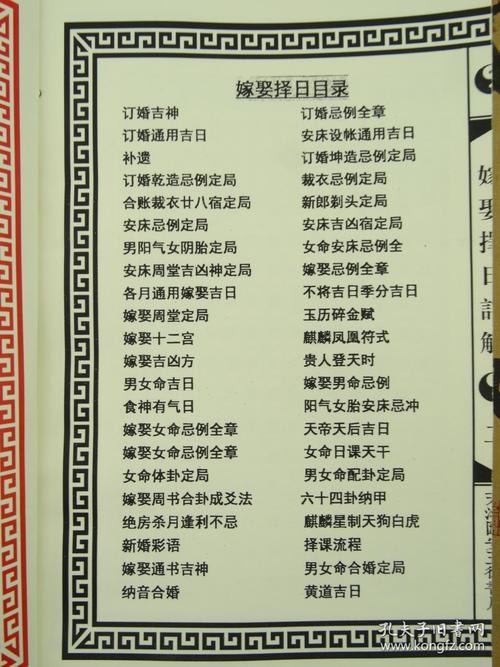 嫁娶择日目录
订婚吉神 订婚忌例全章
订婚通用吉日 安床设帐通用吉日
补遗 订婚坤造忌例定局
订婚乾造忌例定局 裁衣忌例定局
合账裁衣廿八宿定局 新郎剃头定局
安床忌例定局 安床吉凶宿定局
男阳气女阴胎定局 女命安床忌例全
安床周堂吉凶神定局 嫁娶忌例全章
各月通用嫁娶吉日 不将吉日季分吉日
嫁娶周堂定局 玉历碎金赋
嫁娶十二宫 麒麟凤凰符式
嫁娶吉凶方 贵人登天时
男女命吉日 嫁娶男命忌例
食神有气日 阳气女胎安床忌冲
嫁娶女命忌例全章 天帝天后吉日
嫁娶女命忌例全章 女命日课天干
女命体卦定局 男女命配卦定局
嫁娶周书合卦成爻法 六十四卦纳甲
绝房杀月逢利不忌 麒麟星制天狗白虎
新婚彩语 择课流程
嫁娶通书吉神 男女命合婚定局
纳音合婚 黄道吉日
嫁娶择日详解
二
孔夫子旧书网
www.kongfz.com